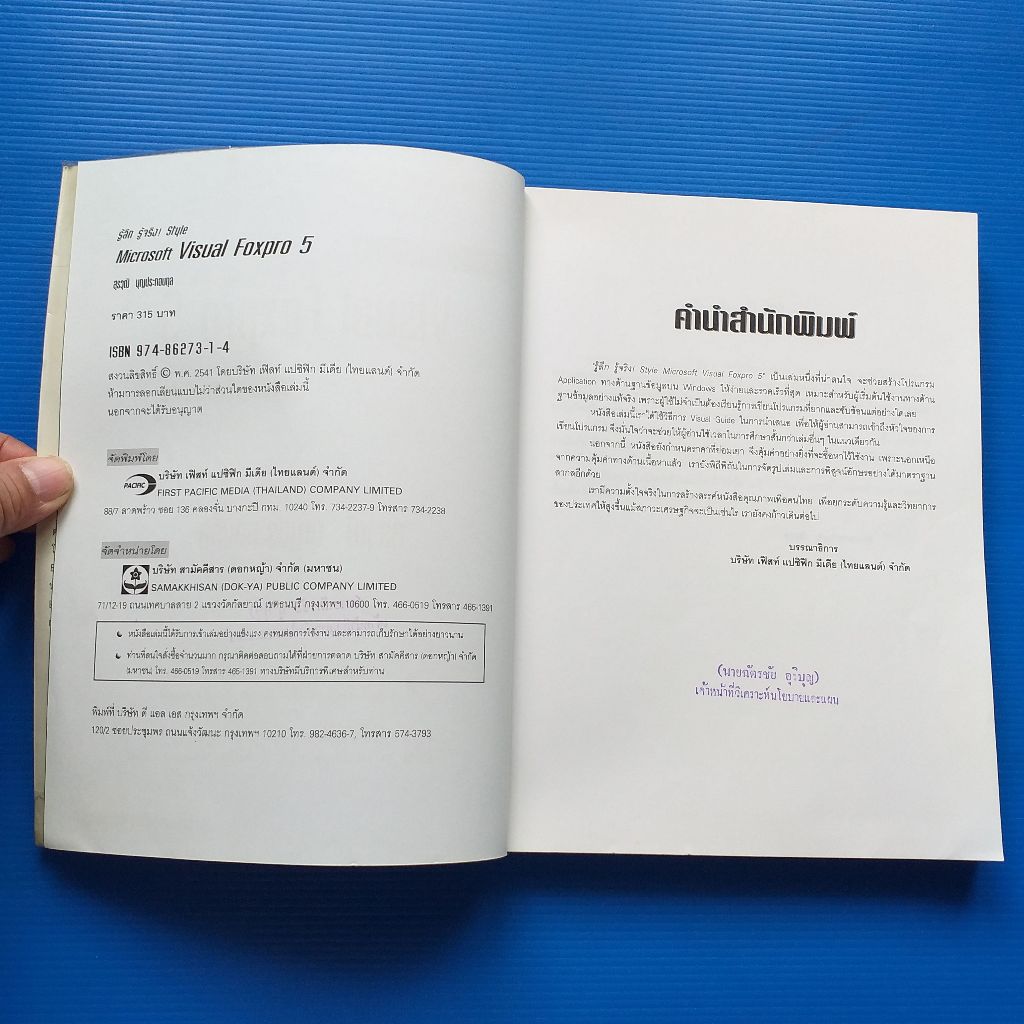 รู้ลึก รู้จริง! Style
Microsoft Visual Foxpro 5
สุรวุฒิ บุญประกอบกุล
ราคา 315 บาท
ISBN 974-86273-1-4
สงวนลิขสิทธิ์ © พ.ศ. 2541 โดยบริษัท เฟิสท์ แปซิฟิก มีเดีย (ไทยแลนด์) จำกัด
ห้ามการลอกเลียนแบบไม่ว่าส่วนใดของหนังสือเล่มนี้
นอกจากจะได้รับอนุญาต
จัดพิมพ์โดย
PACIFIC
บริษัท เฟิสท์ แปซิฟิก มีเดีย (ไทยแลนด์) จำกัด
FIRST PACIFIC MEDIA (THAILAND) COMPANY LIMITED
88/7 ลาดพร้าว ซอย 136 คลองจั่น บางกะปิ กทม. 10240 โทร. 734-2237-9 โทรสาร 734-2238
จัดจำหน่ายโดย
บริษัท สามัคคีสาร (ดอกหญ้า) จำกัด (มหาชน)
SAMAKKHISAN (DOK-YA) PUBLIC COMPANY LIMITED
71/12-19 ถนนเทศบาลสาย 2 แขวงวัดกัลยาณ์ เขตธนบุรี กรุงเทพฯ 10600 โทร. 466-0519 โทรสาร 465-1391
● หนังสือเล่มนี้ได้รับการเข้าเล่มอย่างแข็งแรง คงทนต่อการใช้งาน และสามารถเก็บรักษาได้อย่างยาวนาน
● ท่านที่สนใจสั่งซื้อจำนวนมาก กรุณาติดต่อสอบถามได้ที่ฝ่ายการตลาด บริษัท สามัคคีสาร (ดอกหญ้า) จำกัด
(มหาชน) โทร. 466-0519 โทรสาร 465-1391 ทางบริษัทมีบริการพิเศษสำหรับท่าน
พิมพ์ที่ บริษัท ดี แอล เอส กรุงเทพฯ จำกัด
120/2 ซอยประชุมพร ถนนแจ้งวัฒนะ กรุงเทพฯ 10210 โทร. 982-4636-7, โทรสาร 574-3793
คำนำสำนักพิมพ์
"รู้ลึก รู้จริง! Style Microsoft Visual Foxpro 5" เป็นเล่มหนึ่งที่น่าสนใจ จะช่วยสร้างโปรแกรม
Application ทางด้านฐานข้อมูลบน Windows ให้ง่ายและรวดเร็วที่สุด เหมาะสำหรับผู้เริ่มต้นใช้งานทางด้าน
ฐานข้อมูลอย่างแท้จริง เพราะผู้ใช้ไม่จำเป็นต้องเรียนรู้การเขียนโปรแกรมที่ยากและซับซ้อนแต่อย่างใดเลย
หนังสือเล่มนี้เราได้ใช้วิธีการ Visual Guide ในการนำเสนอ เพื่อให้ผู้อ่านสามารถเข้าถึงหัวใจของการ
เขียนโปรแกรม จึงมั่นใจว่าจะช่วยให้ผู้อ่านใช้เวลาในการศึกษาสั้นกว่าเล่มอื่นๆ ในแนวเดียวกัน
นอกจากนี้ หนังสือยังกำหนดราคาที่ย่อมเยา จึงคุ้มค่าอย่างยิ่งที่จะซื้อหาไว้ใช้งาน เพราะนอกเหนือ
จากความคุ้มค่าทางด้านเนื้อหาแล้ว เรายังพิถีพิถันในการจัดรูปเล่มและการพิสูจน์อักษรอย่างได้มาตรฐาน
สากลอีกด้วย
เรามีความตั้งใจจริงในการสร้างสรรค์หนังสือคุณภาพเพื่อคนไทย เพื่อยกระดับความรู้และวิทยาการ
ของประเทศให้สูงขึ้นแม้สภาวะเศรษฐกิจจะเป็นเช่นไร เรายังคงก้าวเดินต่อไป
บรรณาธิการ
บริษัท เฟิสท์ แปซิฟิก มีเดีย (ไทยแลนด์) จำกัด
(นายฉัตรชัย อุริบุญ)
เจ้าหน้าที่วิเคราะห์นโยบายและแผน